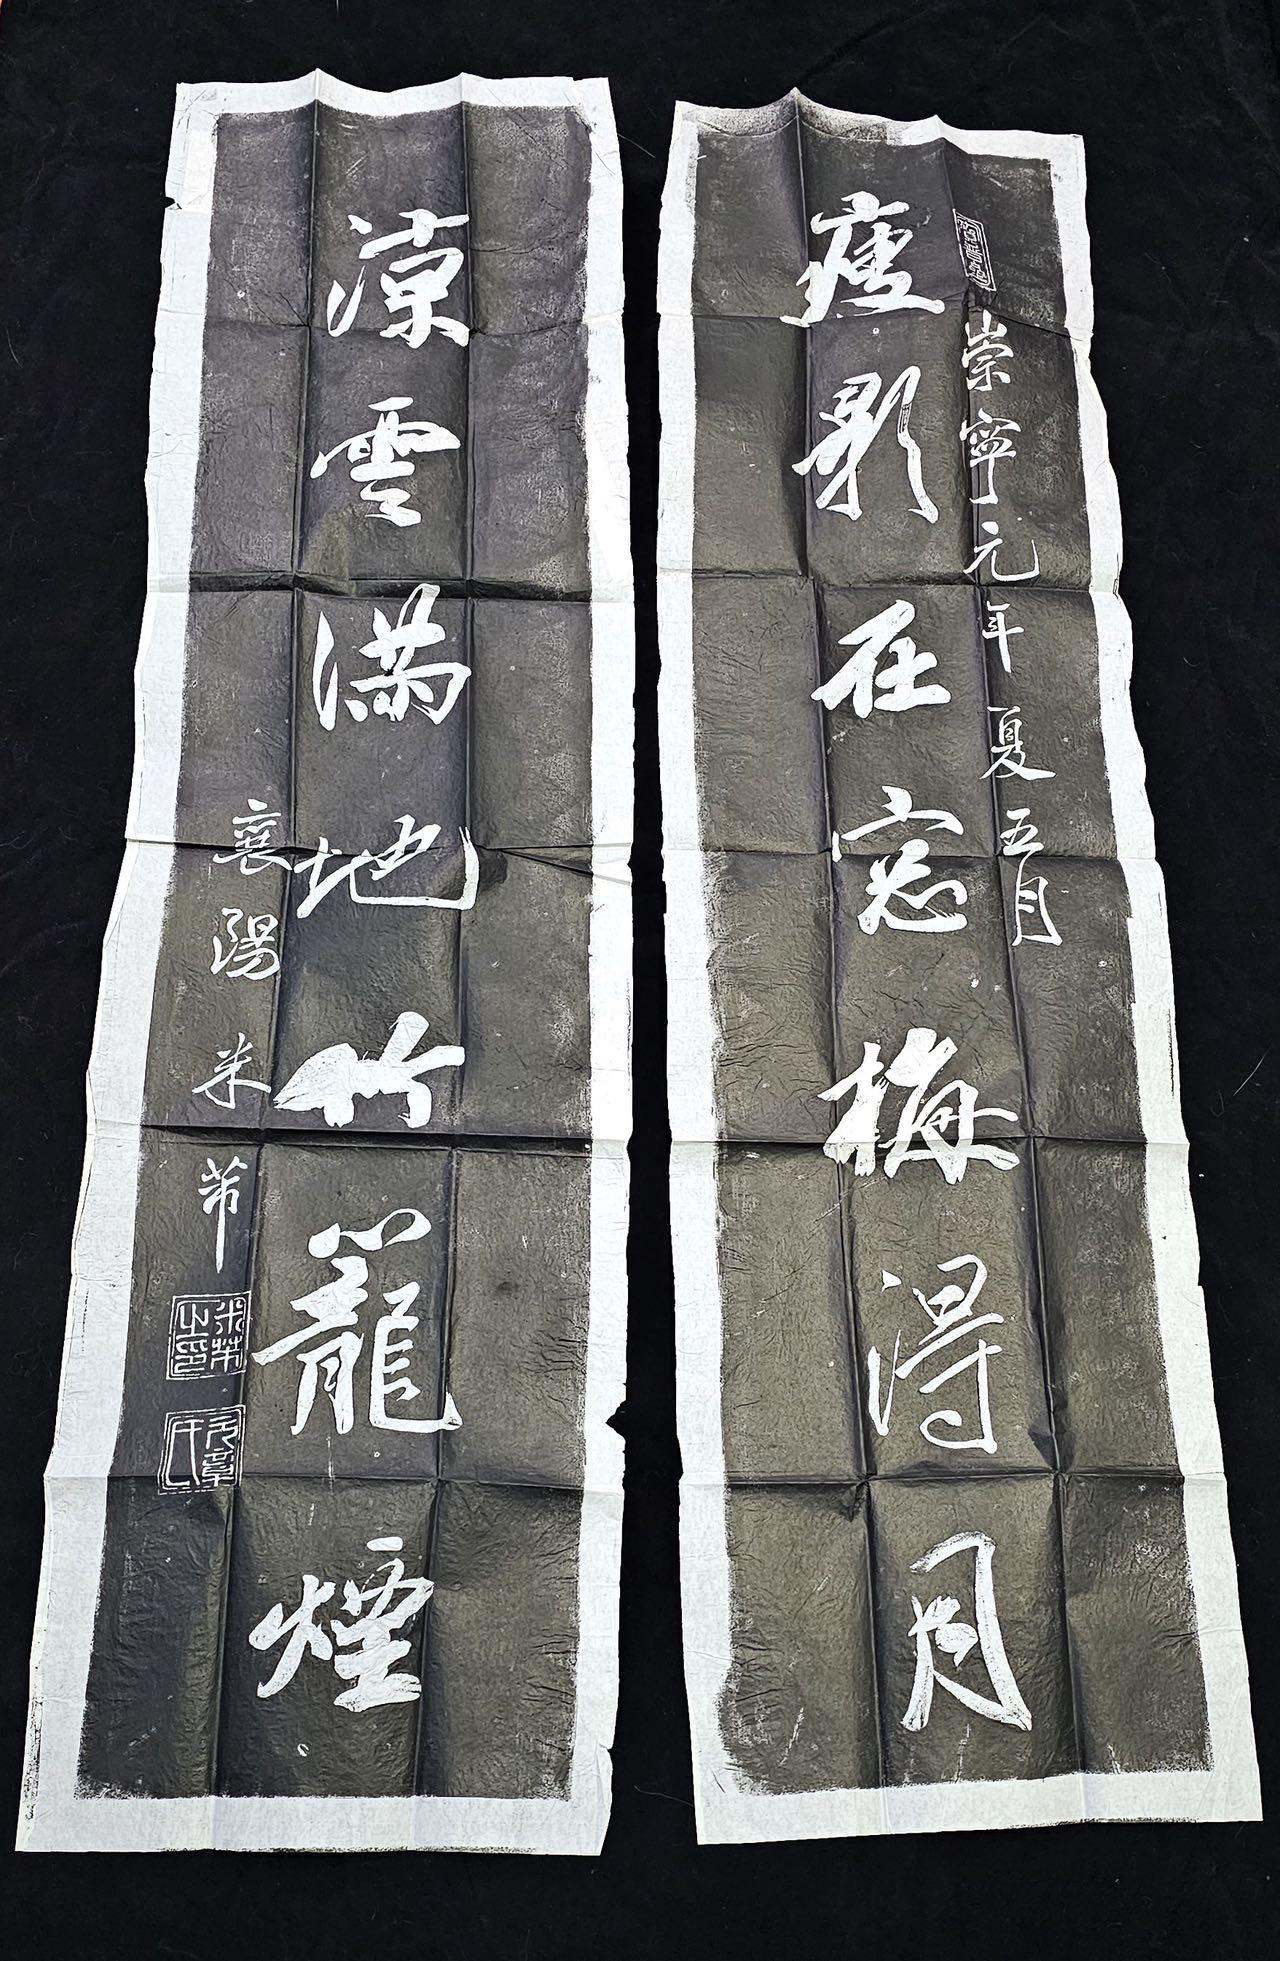 崇寧元年夏五月
瘦影在窓梅得月
涼雲滿地竹籠煙
襄陽米芾
米芾之印
元章氏